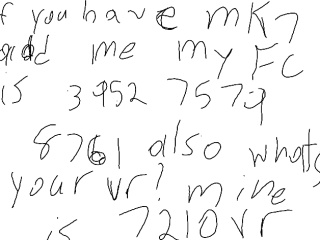 f you have mK7
add me my FC
is 3952 7579
8761 also whats
your vr? mine
is 7210 vr